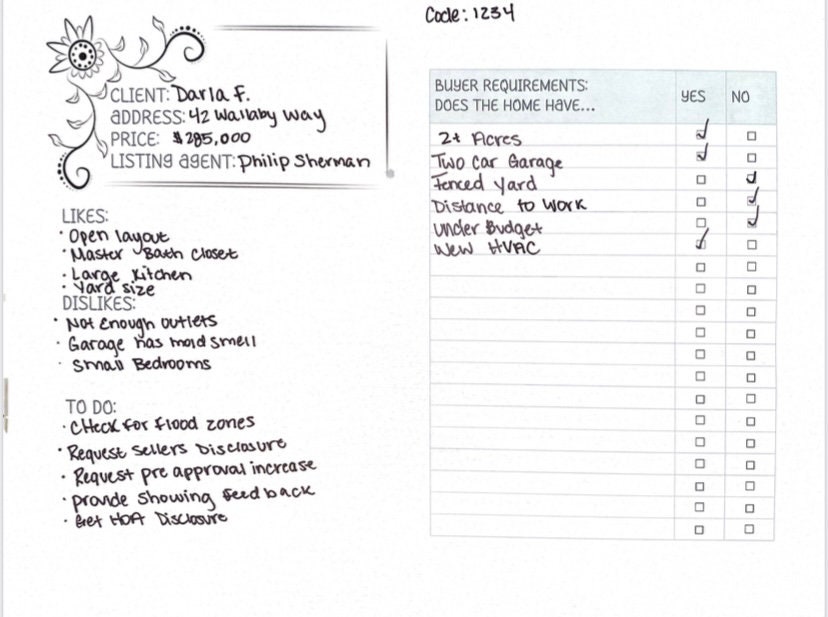 Code: 1234
CLIENT: Darla F.
ADDRESS: 42 Wallaby Way
PRICE: $285,000
LISTING AGENT: Philip Sherman
LIKES:
· Open layout
· Master Bath Closet
· Large Kitchen
· Yard size
DISLIKES:
· Not Enough outlets
· Garage has mold smell
· Small Bedrooms
TO DO:
· CHeck for flood zones
· Request Sellers Disclosure
· Request pre approval increase
· provide Showing feedback
· Get HOA Disclosure
BUYER REQUIREMENTS:
DOES THE HOME HAVE... YES NO
2+ Acres
Two Car Garage
Fenced Yard
Distance to Work
Under Budget
New HVAC